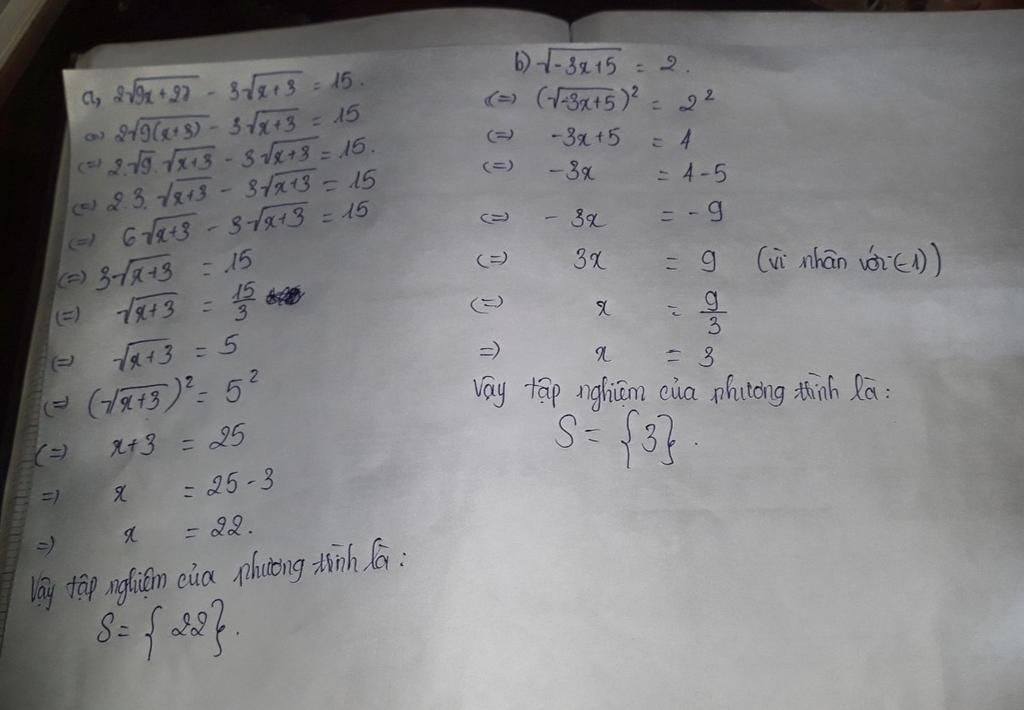 a, 2√9x+27 - 3√x+3 = 15.
(=) 2√9(x+3) - 3√x+3 = 15
(=) 2.√9.√x+3 - 3√x+3 = 15.
(=) 2.3.√x+3 - 3√x+3 = 15
(=) 6√x+3 - 3√x+3 = 15
(=) 3√x+3 = 15
(=) √x+3 = 15/3
(=) √x+3 = 5
(=) (√x+3)² = 5²
(=) x+3 = 25
=) x = 25-3
=) x = 22.
Vậy tập nghiệm của phương trình là:
S= { 22}.
b) √-3x+5 = 2.
(=) (√-3x+5)² = 2²
(=) -3x+5 = 4
(=) -3x = 4-5
(=) -3x = -9
(=) 3x = 9 (vì nhân với (-1))
(=) x = 9/3
=) x = 3
Vậy tập nghiệm của phương trình là:
S= {3}.